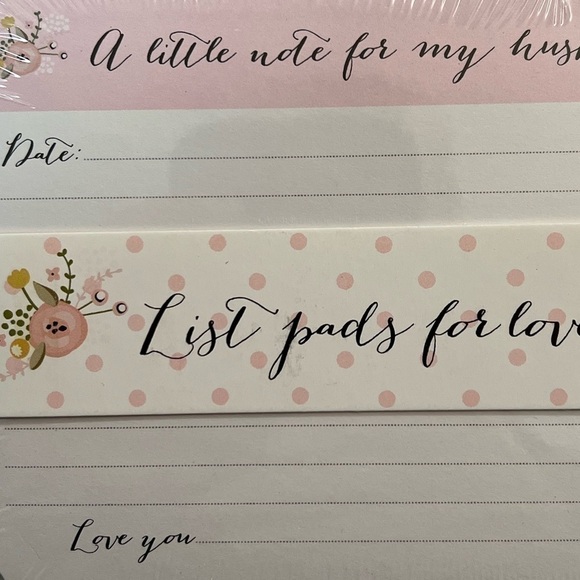 A little note for my
Date:
List pads for
Love you